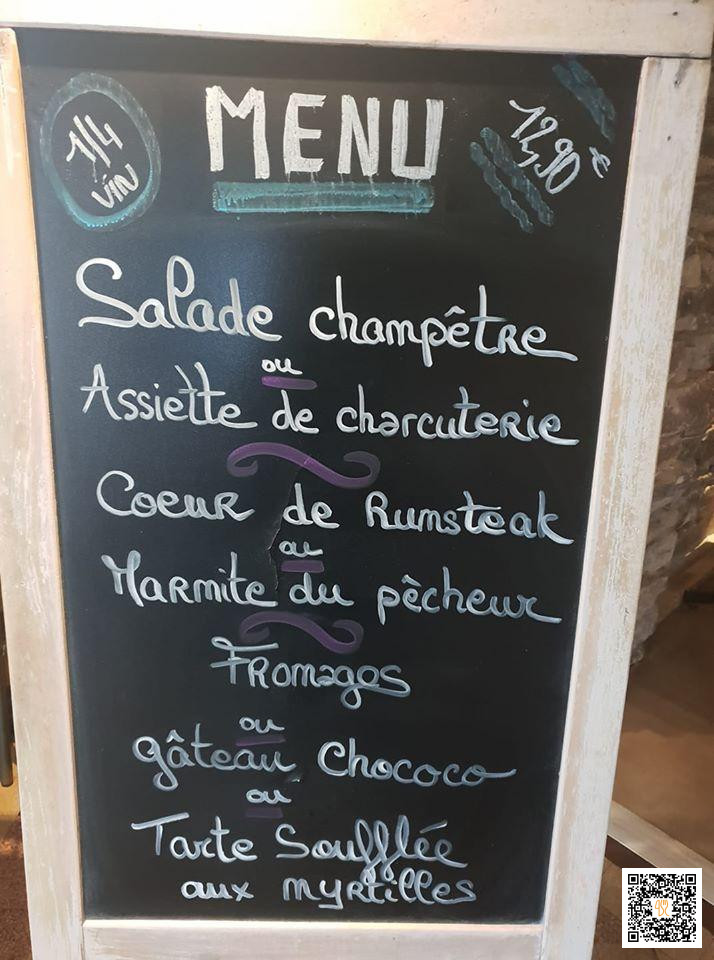 1/4
VIN
MENU
12,90 €
Salade champêtre
ou
Assiette de charcuterie
Coeur de Rumsteak
ou
Marmite du pêcheur
Fromages
ou
gâteau Chococo
ou
Tarte Soufflée
aux myrtilles